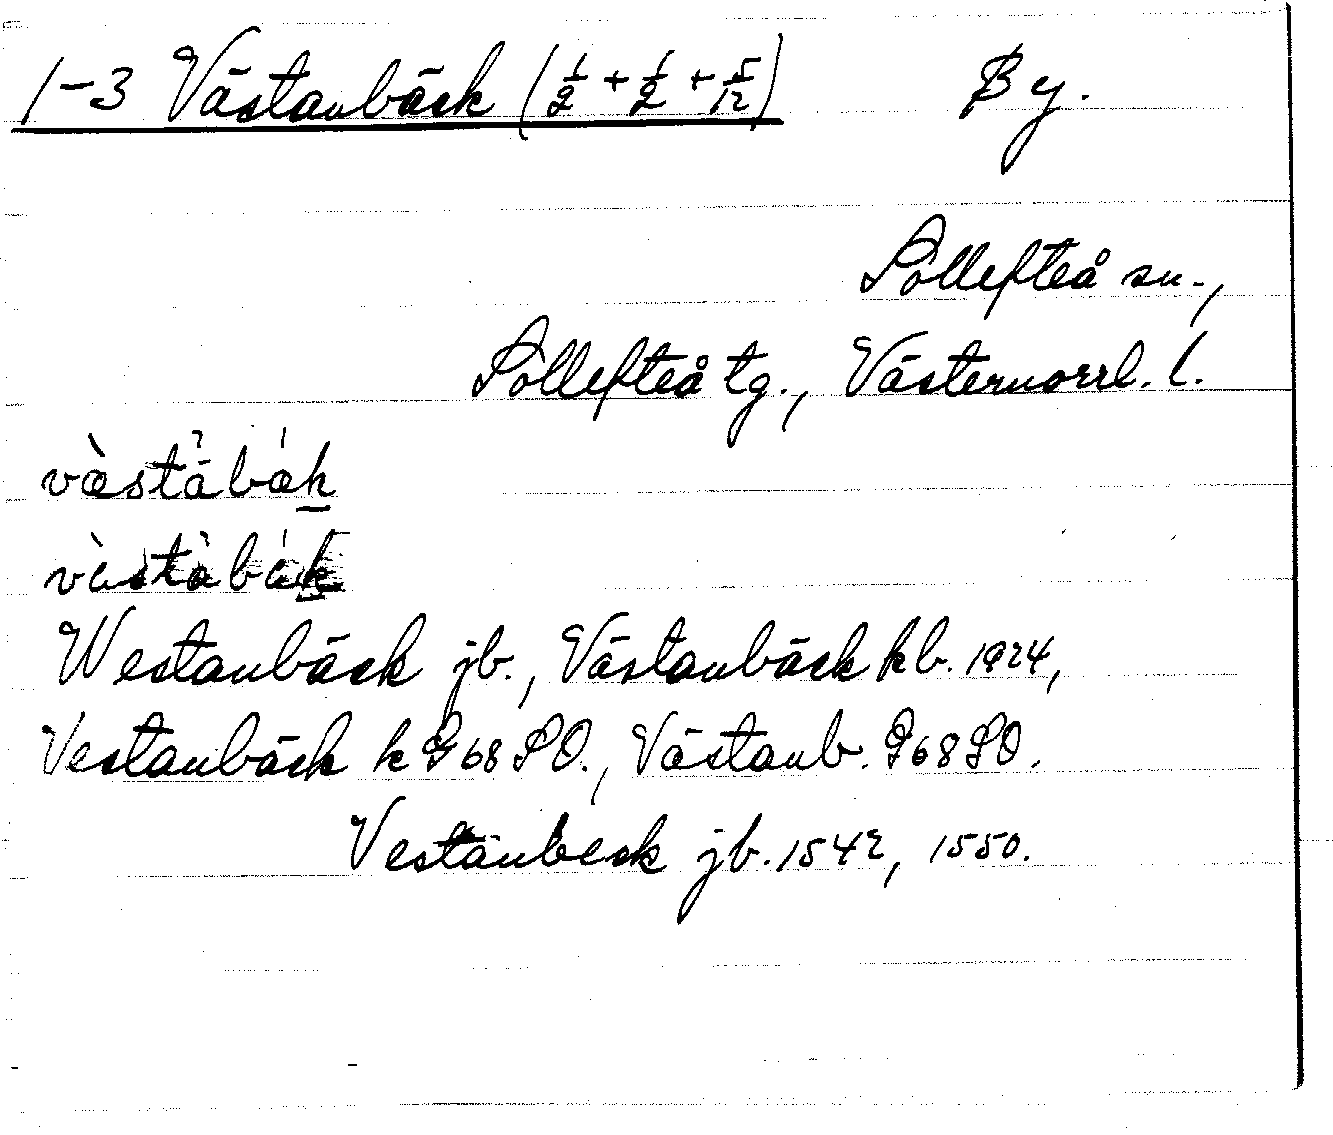 1-3 Västanbäck (1/2 + 1/2 + 5/12) By.
Sollefteå sn.,
Sollefteå tg., Västernorrl. l.
Westanbäck jb., Västanbäck kb. 1924,
Vestanbäck k G68SO., Västanb. G68SO.
Vestanbeck jb. 1542, 1550.